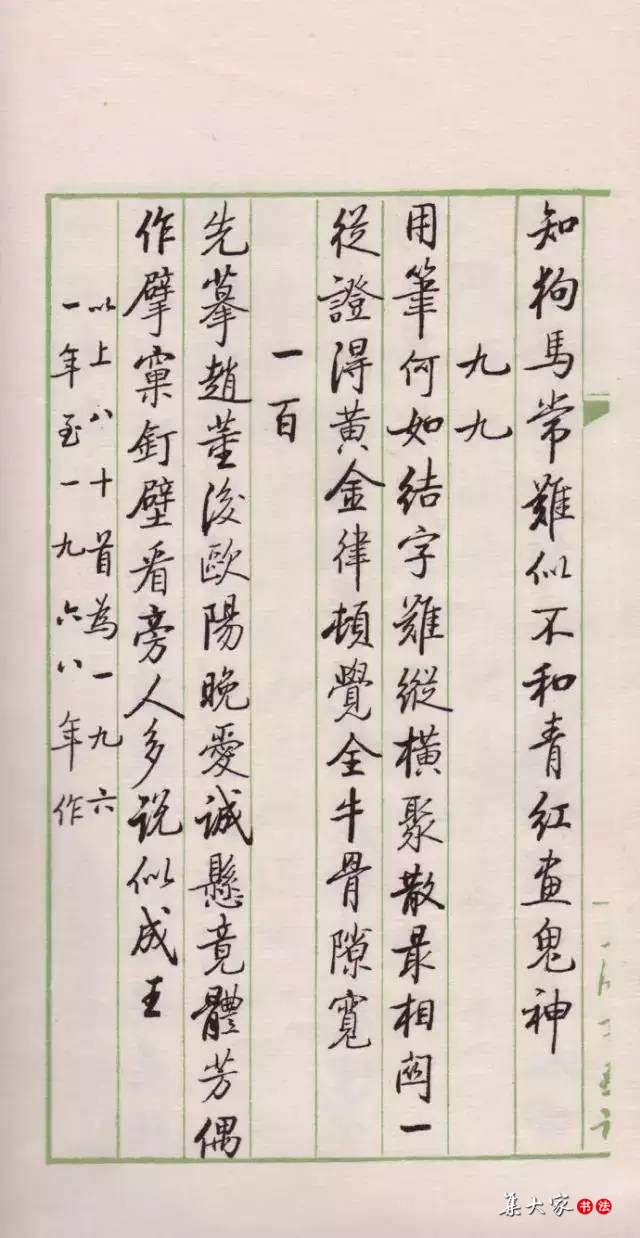 知狗馬常難似不和青红畫鬼神
九九
用筆何如結字難縱横聚散最相関一
從證得黄金律頓覺全牛骨隙寬
一百
先摹趙董後歐陽晚愛誠懸竟體芳偶
作擘窠釘壁看旁人多说似成王
以上八十首為一九六
一年至一九六八年作
集大家书法